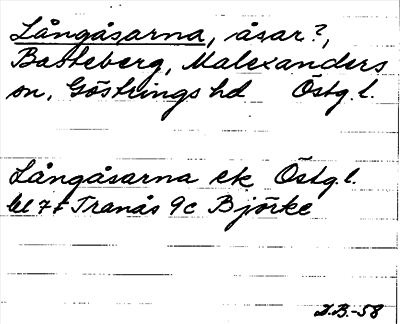 Långåsarna, åsar?,
Batteberg, Malexanders
sn, Göstrings hd Östg.l.
Långåsarna ek Östg.l.
bl 7f Tranås 9c Björke
D.B.-58